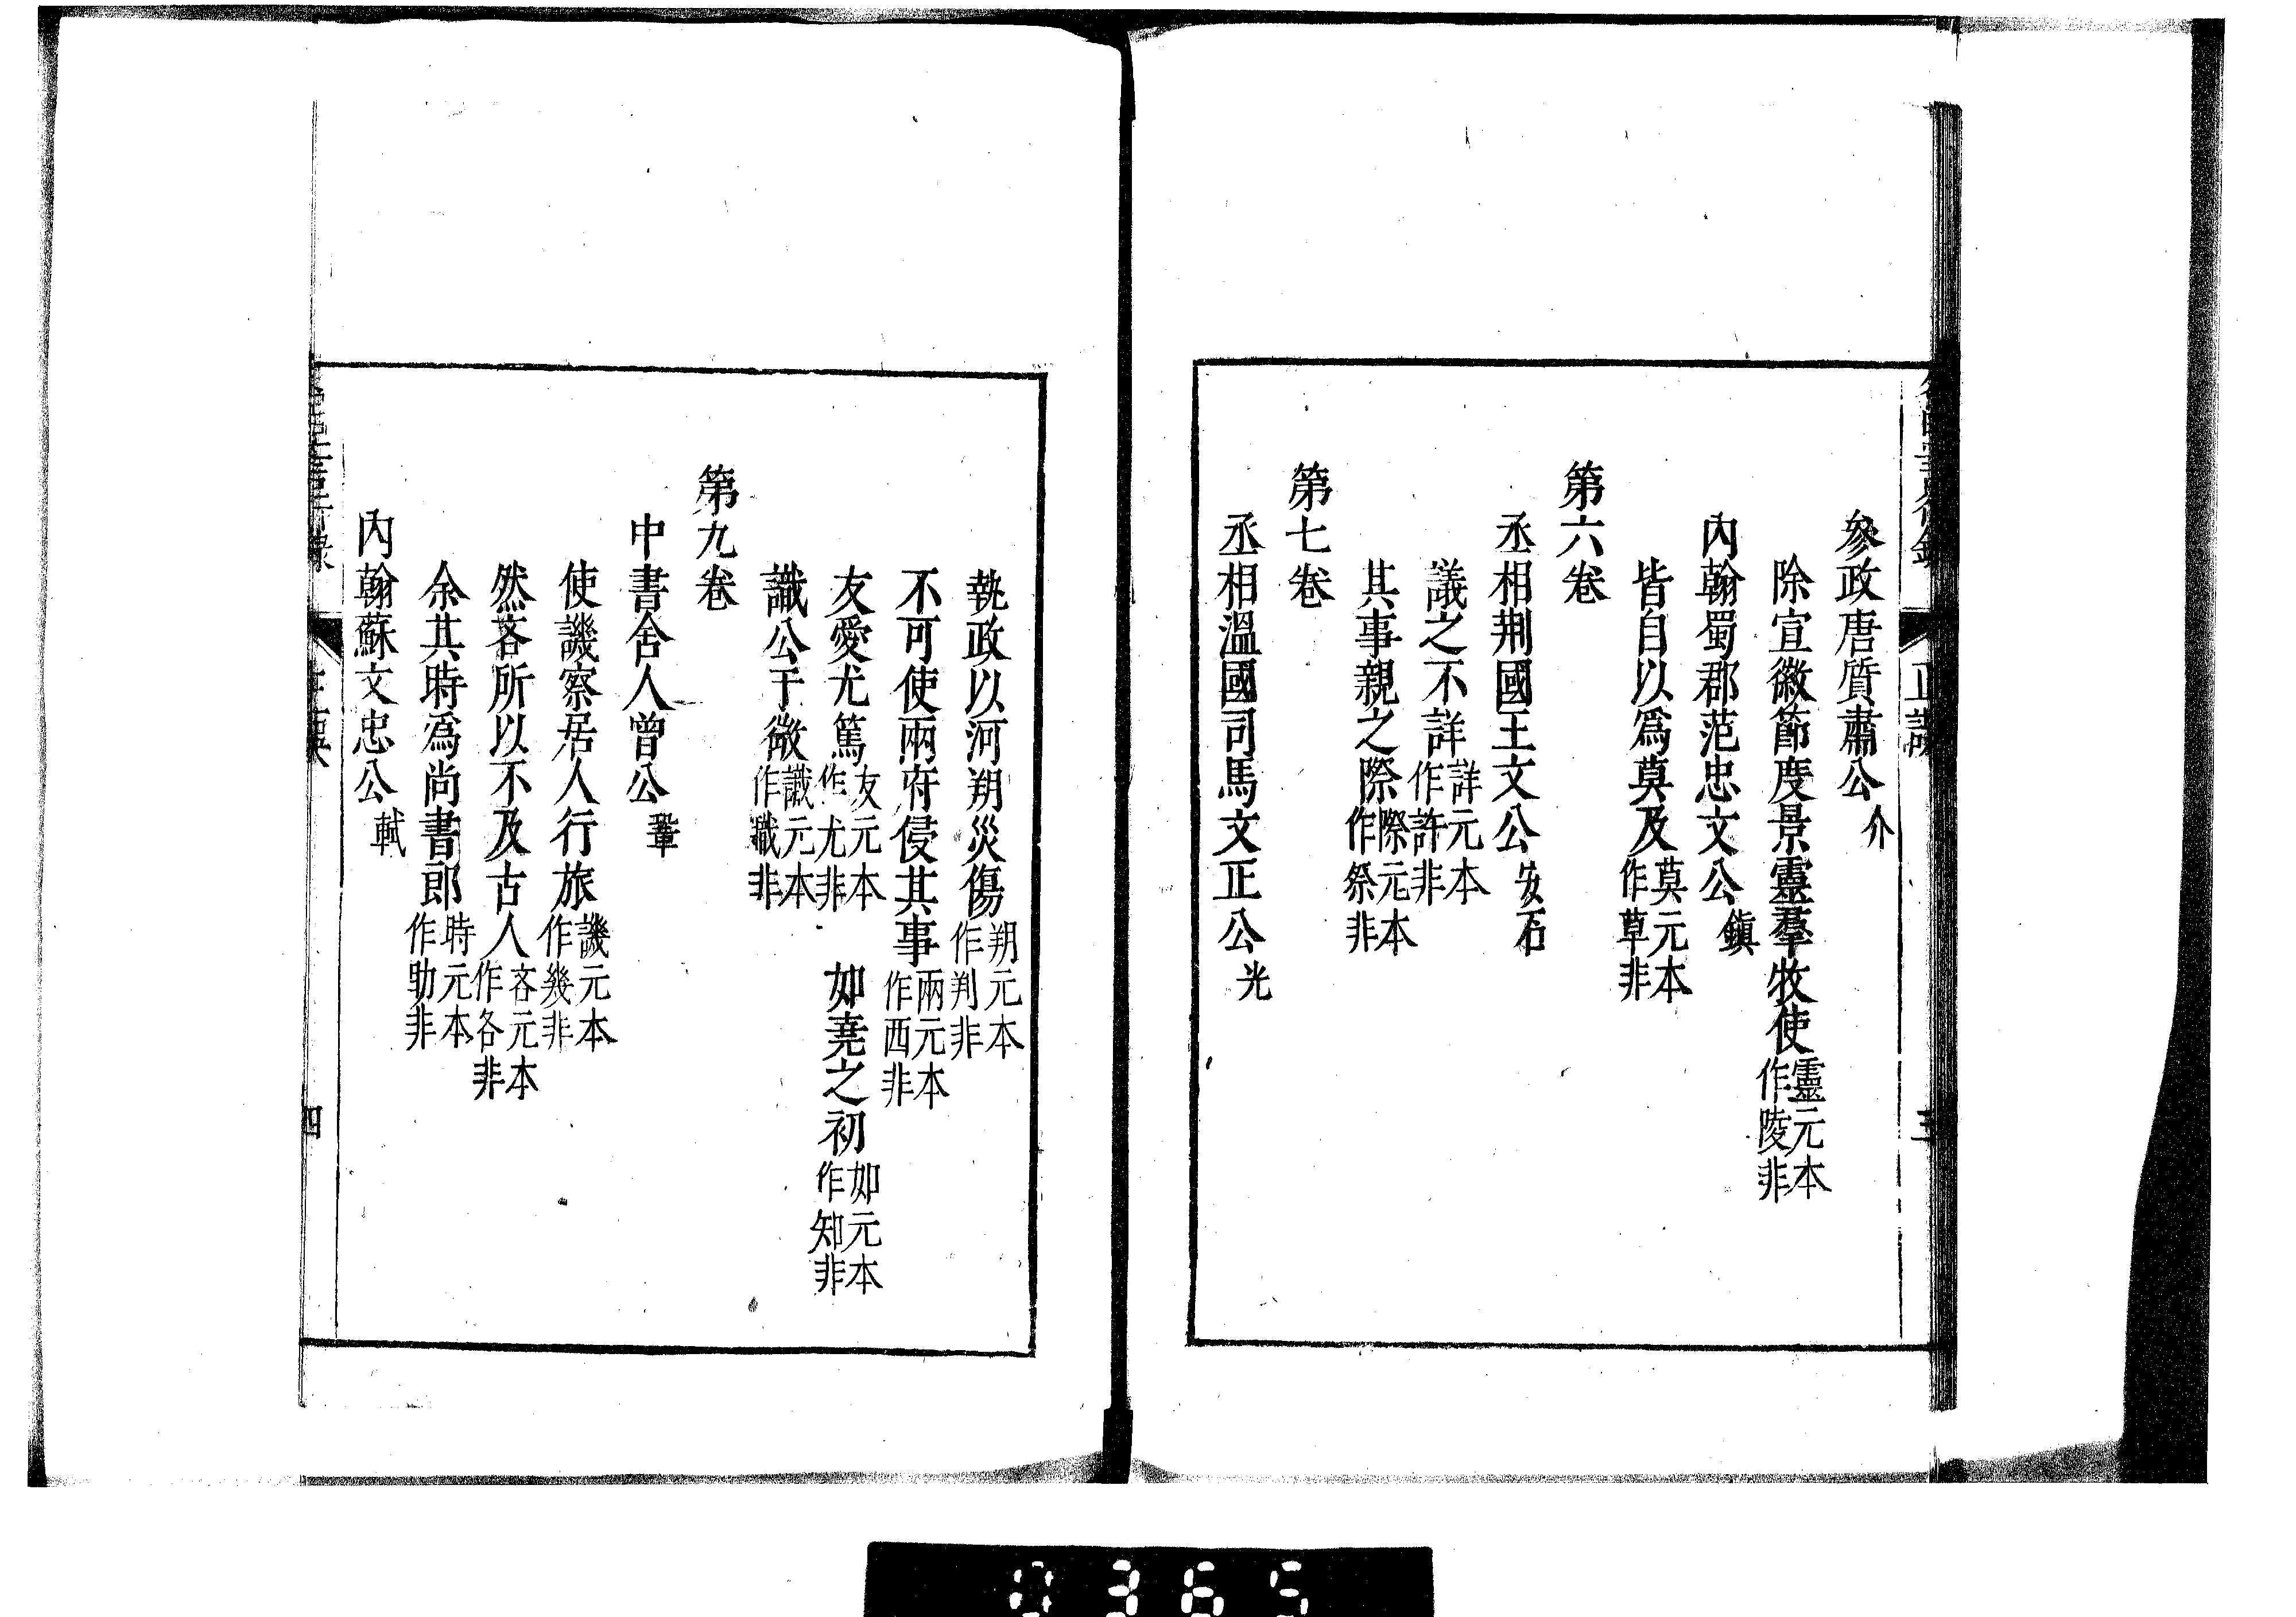 參政唐質肅公介
除宣徽節度景靈羣牧使靈元本作陵非
內翰蜀郡范忠文公鎭
皆自以爲莫及莫元本作草非
第六卷
丞相荆國王文公安石
議之不詳詳元本作許非
其事親之際際元本作祭非
第七卷
丞相溫國司馬文正公光
正譌
三
執政以河朔災傷朔元本作判非
不可使兩府侵其事兩元本作西非
友愛尤篤友元本作尤非 如堯之初如元本作知非
讖公于微讖元本作職非
第九卷
中書舍人曾公鞏
使譏察居人行旅譏元本作幾非
然吝所以不及古人吝元本作各非
余其時爲尚書郎時元本作助非
內翰蘇文忠公軾
四
0365